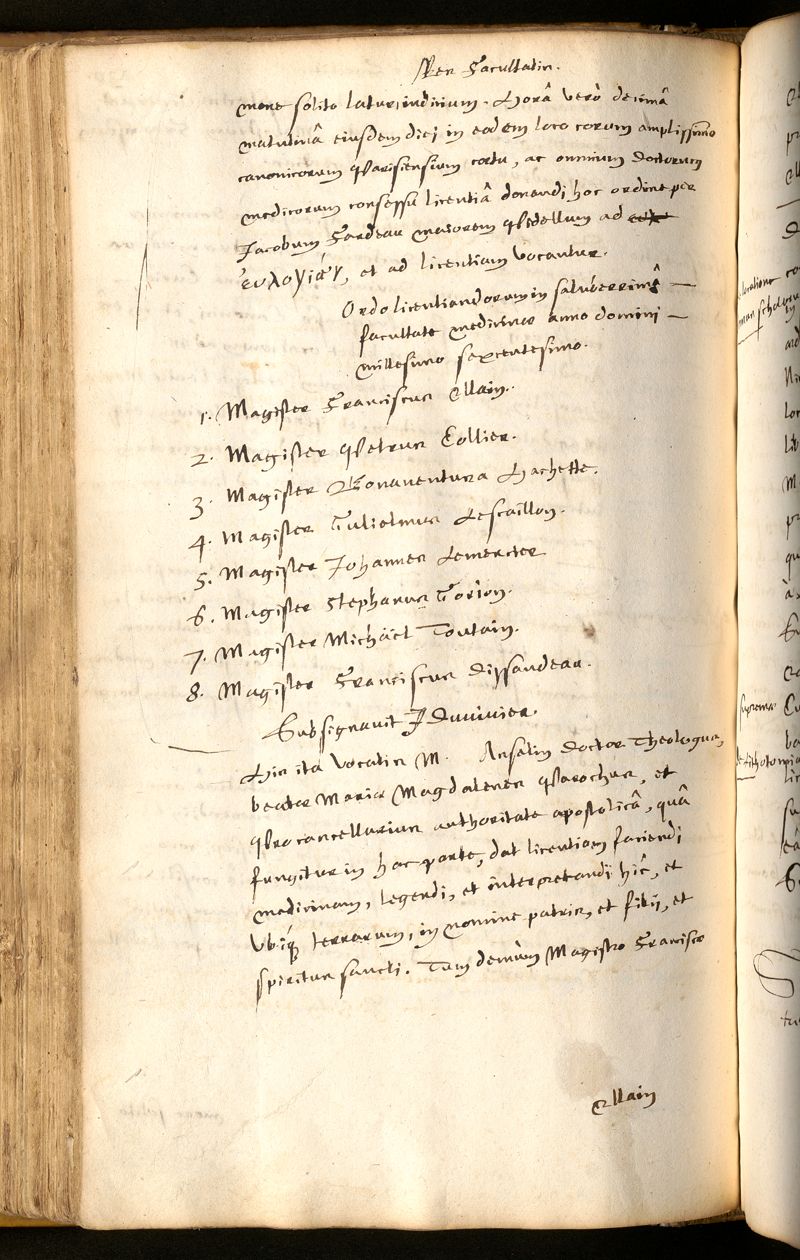 Per Facultatis.
more solito laturi iudicium. Horâ verò decimâ
matutinâ eiusdem diei in eodem loco coram amplissimo
canonicorum Parisiensium coetu, ac omnium doctorum
medicorum consessu licentiâ donandi hoc ordine per
Jacobum Fardeau maiorem Bidellum ad
ἐυλογίαν, et ad licentiam vocantur.
Ordo licentiandorum in saluberrimâ –
facultate medicinae anno domini –
millesimo sexcentesimo.
1. Magister Franciscus Allain.
2. Magister Petrus Collier.
3. Magister Bonaventura Hachette.
4. Magister Gulielmus Lescaillon.
5. Magister Johannes Lemercier
6. Magister Stephanus Gorion.
7. Magister Michäel Toutain.
8. Magister Franciscus Dissaudeau.
Subsignavit J Duvivier.
His ita vocatis M. Anselin doctor Theologus,
beatae Mariae Magdalenes Parochus, et
Procancellarius authoritate apostolicâ, quâ
fungitur in hac parte, dat licentiam faciendi
medicinam, legendi, et interpretandi hîc, et
Ubiq́ue terrarum, in nomine patris, et filij, et
spiritus sancti. Tum demùm Magistro Francisco
Allain
locatione
man scholarum
suprema
de Lithotomia